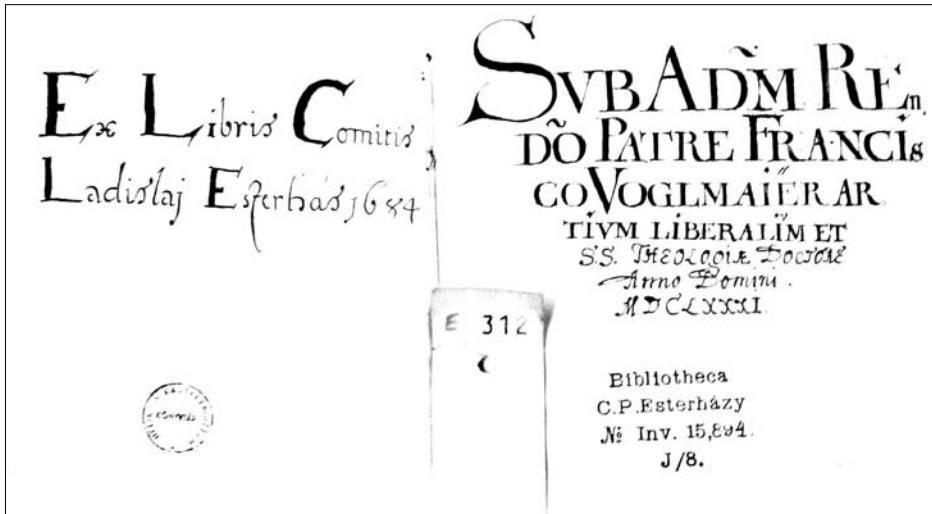 Ex Libris Comitis
Ladislaj Esterhás 1684
KÖNYVTÁR
SVB ADM̃ REn
DÕ PATRE FRANCIS
CO VOGLMAIER AR
TIVM LIBERALIŨM ET
S.S. THEOLOGIÆ DOCTORE
Anno Domini.
MDCLXXXI.
E 312
Bibliotheca
C.P.Esterházy
№ Inv. 15,894.
J/8.